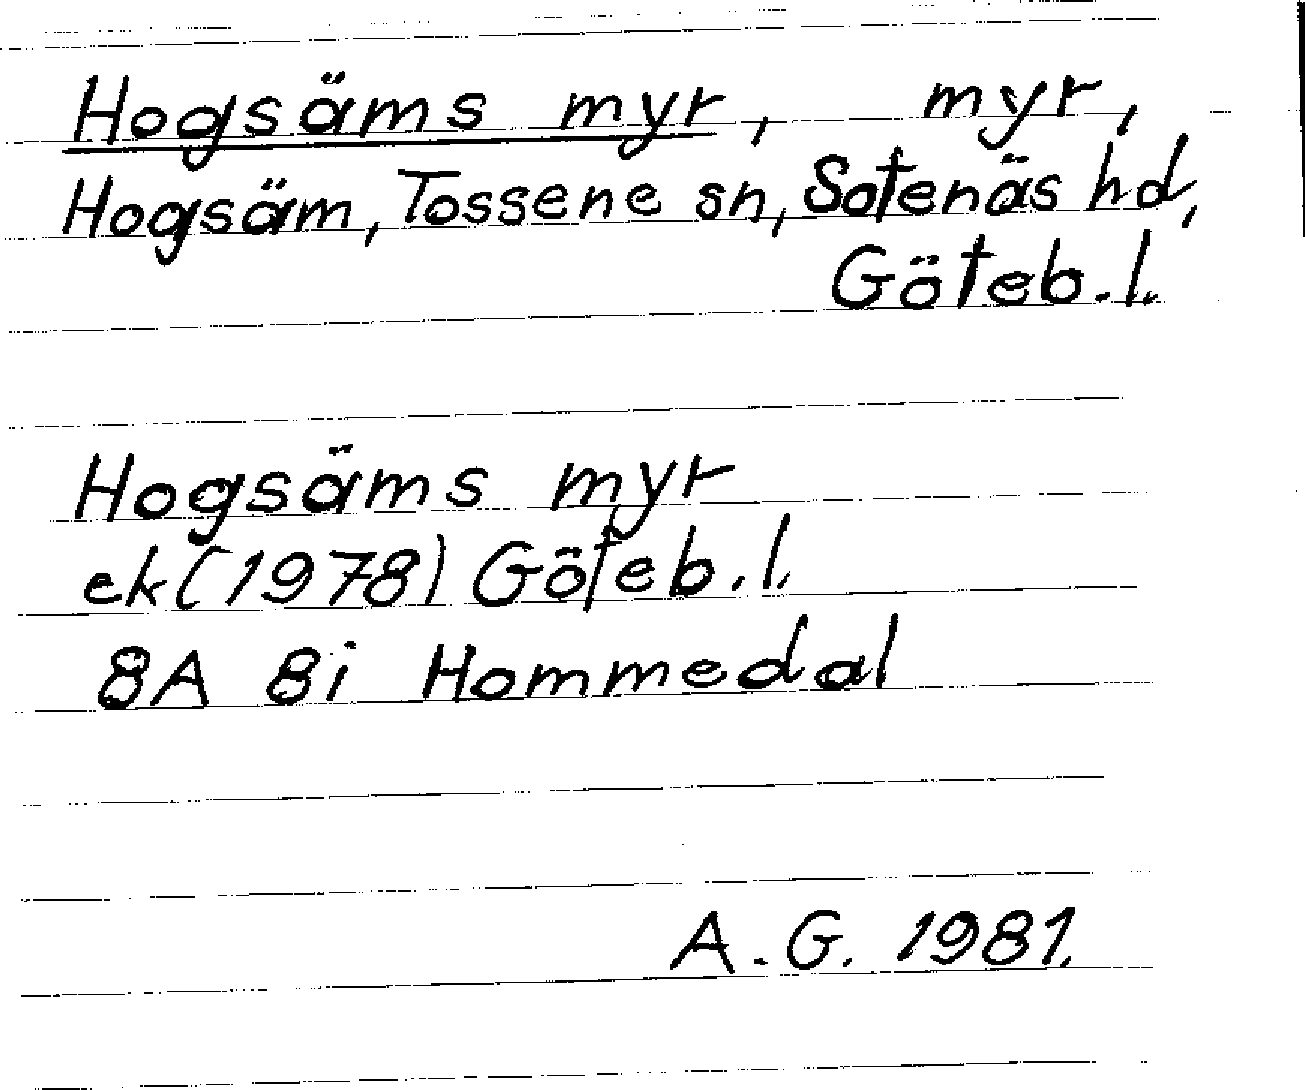 Hogsäms myr, myr,
Hogsäm, Tossene sn, Sotenäs hd,
Göteb.l.
Hogsäms myr
ek(1978) Göteb.l.
8A 8i Hommedal
A.G. 1981.